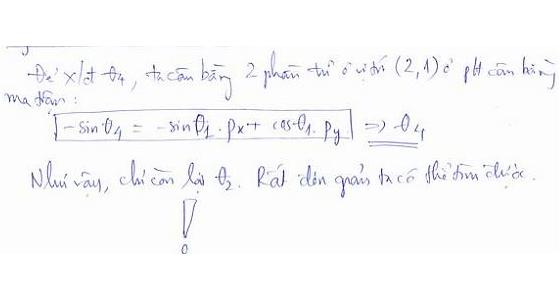 Để x/đ θ4, ta cân bằng 2 phần tử ở vị trí (2,1) ở pt cân bằng
ma trận:
-sinθ4 = -sinθ1.px + cosθ1.py => θ4
Như vậy, chỉ còn lại θ2. Rất đơn giản ta có thể tìm được.